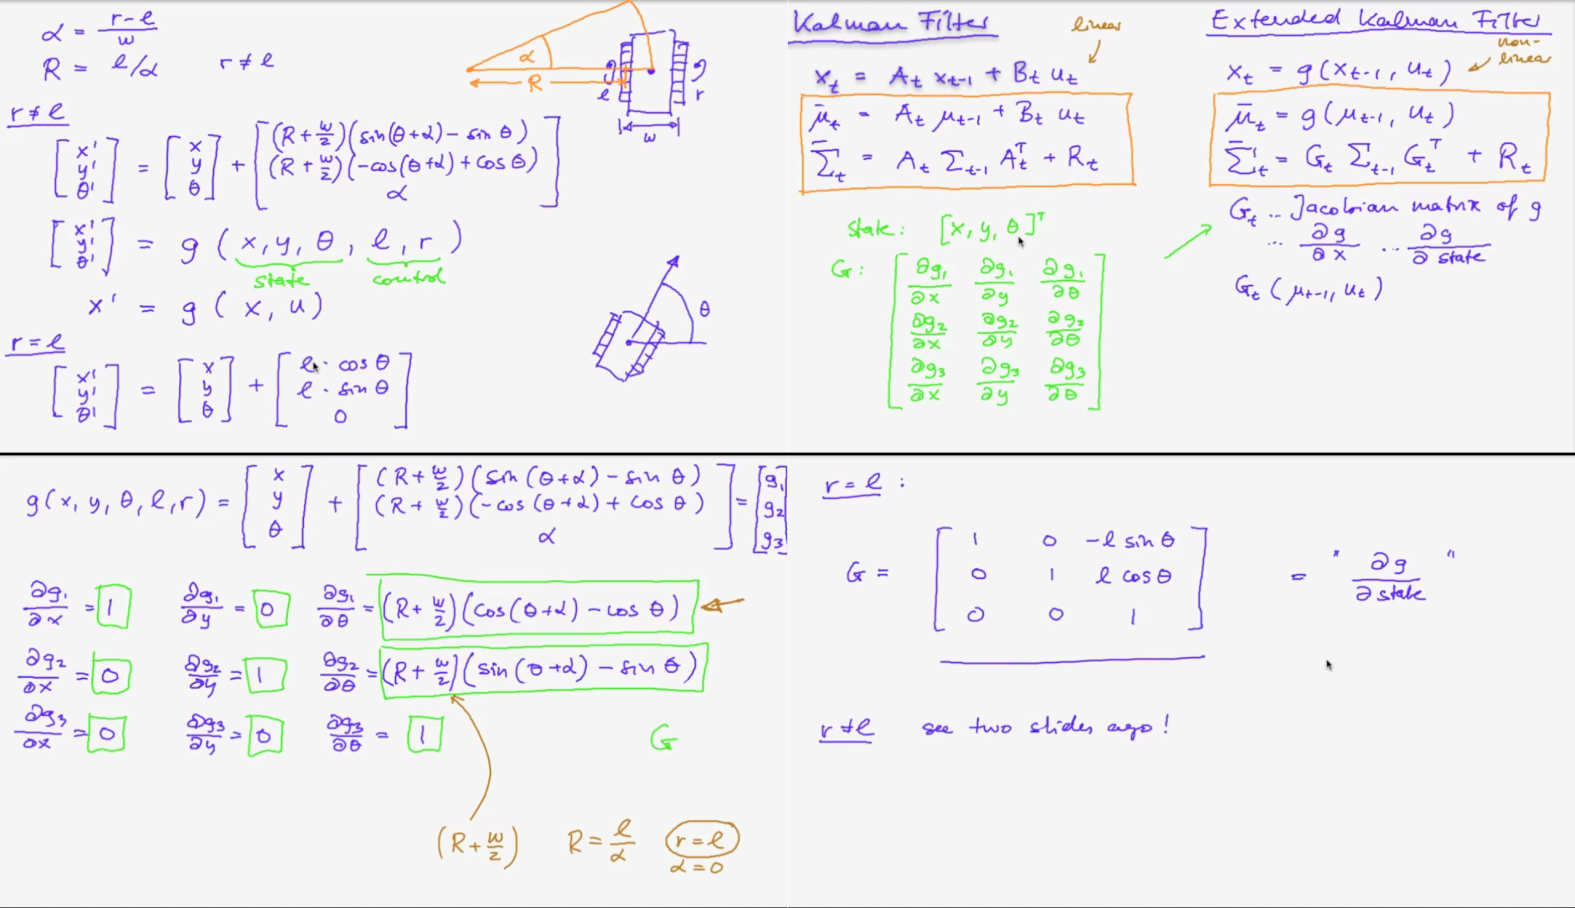 α = (r-l)/w
R = l/α    r ≠ l
α
R
l
r
w
r ≠ l
[x' y' θ'] = [x y θ] + [(R+w/2)(sin(θ+α) - sin θ)
(R+w/2)(-cos(θ+α) + cos θ)
α]
[x' y' θ'] = g(x, y, θ, l, r)
state    control
x' = g(x, u)
θ
r = l
[x' y' θ'] = [x y θ] + [l · cos θ
l · sin θ
0]
Kalman Filter
linear
x_t = A_t x_t-1 + B_t u_t
μ̄_t = A_t μ_t-1 + B_t u_t
Σ̄_t = A_t Σ_t-1 A_t^T + R_t
State: [x, y, θ]^T
G: [∂g₁/∂x  ∂g₁/∂y  ∂g₁/∂θ
∂g₂/∂x  ∂g₂/∂y  ∂g₂/∂θ
∂g₃/∂x  ∂g₃/∂y  ∂g₃/∂θ]
Extended Kalman Filter
non-
linear
x_t = g(x_t-1, u_t)
μ̄_t = g(μ_t-1, u_t)
Σ̄_t = G_t Σ_t-1 G_t^T + R_t
G_t .. Jacobian matrix of g
.. ∂g/∂x .. ∂g/∂state
G_t(μ_t-1, u_t)
g(x, y, θ, l, r) = [x y θ] + [(R+w/2)(sin(θ+α) - sin θ)
(R+w/2)(-cos(θ+α) + cos θ)
α] = [g₁ g₂ g₃]
∂g₁/∂x = 1    ∂g₁/∂y = 0    ∂g₁/∂θ = (R+w/2)(cos(θ+α) - cos θ)
∂g₂/∂x = 0    ∂g₂/∂y = 1    ∂g₂/∂θ = (R+w/2)(sin(θ+α) - sin θ)
∂g₃/∂x = 0    ∂g₃/∂y = 0    ∂g₃/∂θ = 1
G
(R+w/2)    R = l/α    r = l
α = 0
r = l :
G = [1  0  -l sin θ
0  1  l cos θ
0  0  1] = "∂g/∂state"
r ≠ l    see two slides ago!